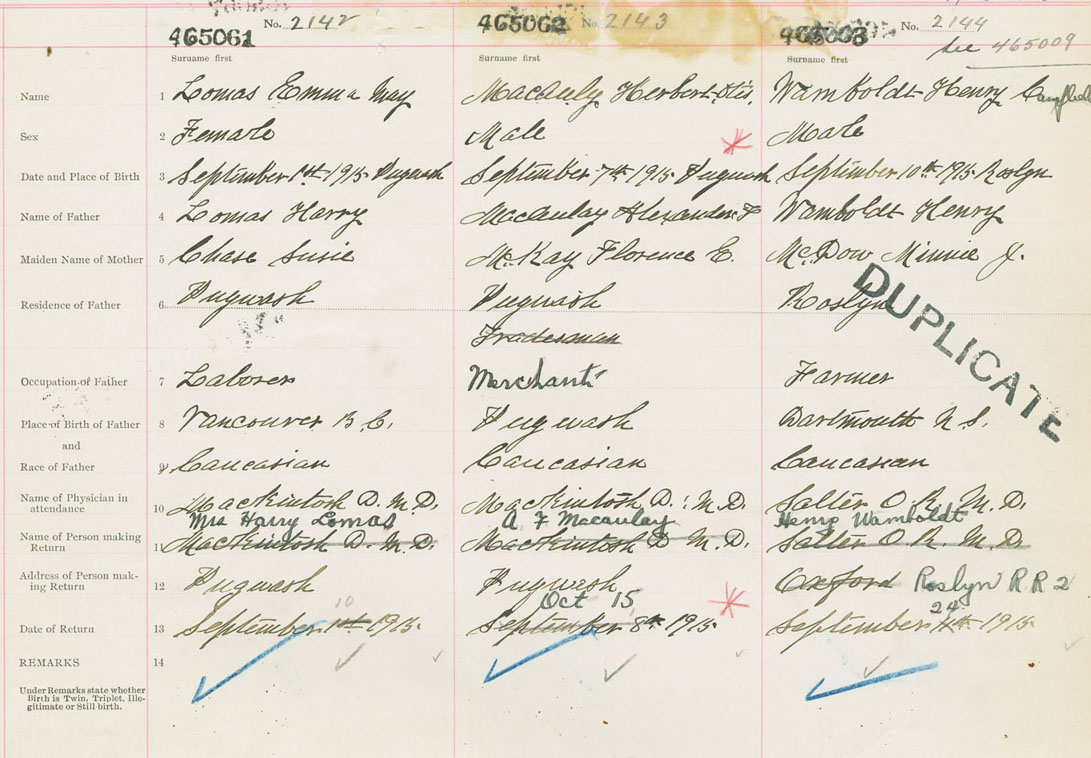 No. 2142
465061
No. 2143
465062
No. 2144
465063
See 465009
Surname first
Surname first
Surname first
Name 1 Lomas Emma May
Macauly Herbert Otis.
Wamboldt Henry Campbell
Sex 2 Female
Male
Male
Date and Place of Birth 3 September 1st 1915 Pugwash
September 7th 1915 Pugwash
September 10th 1915 Roslyn
Name of Father 4 Lomas Harry
MacAulay Alexander F
Wamboldt Henry
Maiden Name of Mother 5 Chase Susie
McKay Florence E.
McDow Minnie J.
Residence of Father 6 Pugwash
Pugwash
Roslyn
DUPLICATE
Tradesman
Occupation of Father 7 Laborer
Merchant
Farmer
Place of Birth of Father 8 Vancouver B.C.
Pugwash
Dartmouth N.S.
and
Race of Father 9 Caucasian
Caucasian
Caucasian
Name of Physician in
attendance 10 MacKintosh D. M.D.
MacKintosh D. M.D.
Salter O.R. M.D.
Mrs Harry Lomas
A F Macaulay
Henry Wamboldt
Name of Person making
Return 11 MacKintosh D. M.D.
MacKintosh D M.D.
Salter O.R. M.D.
Address of Person mak-
ing Return 12 Pugwash
Pugwash
Oxford Roslyn R R 2
10
Oct 15
24
Date of Return 13 September 1st 1915.
September 8th 1915
September 1915
REMARKS 14
Under Remarks state whether
Birth is Twin, Triplet, Ille-
gitimate or Still birth.